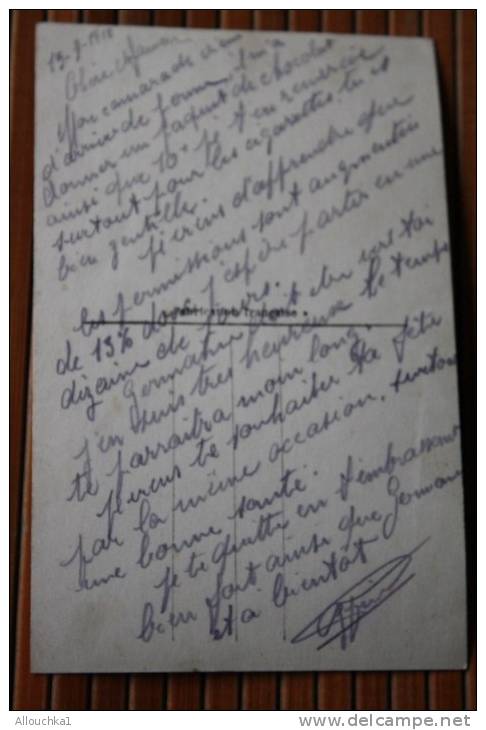 13-9-1918
Chère Maman
Mon camarade vien
d'arriver de permi il m'a
donner un paquet de chocolat
ainsi que 10f je t'en remercie
surtout pour les cigarettes tu es
bien gentille.
je viens d'apprendre que
les permissions sont augmentées
de 13% donc j'espère partir en une
dizaine de jours.
Germaine est chez toi
j'en suis très heureux le temps
te parraitra moin long.
je viens te souhaiter ta fête
par la même occasion, surtout
une bonne santé.
je te quitte en t'embrassant
bien fort ainsi que Germaine
et a bientôt
Allouchka1
www.delcampe.net